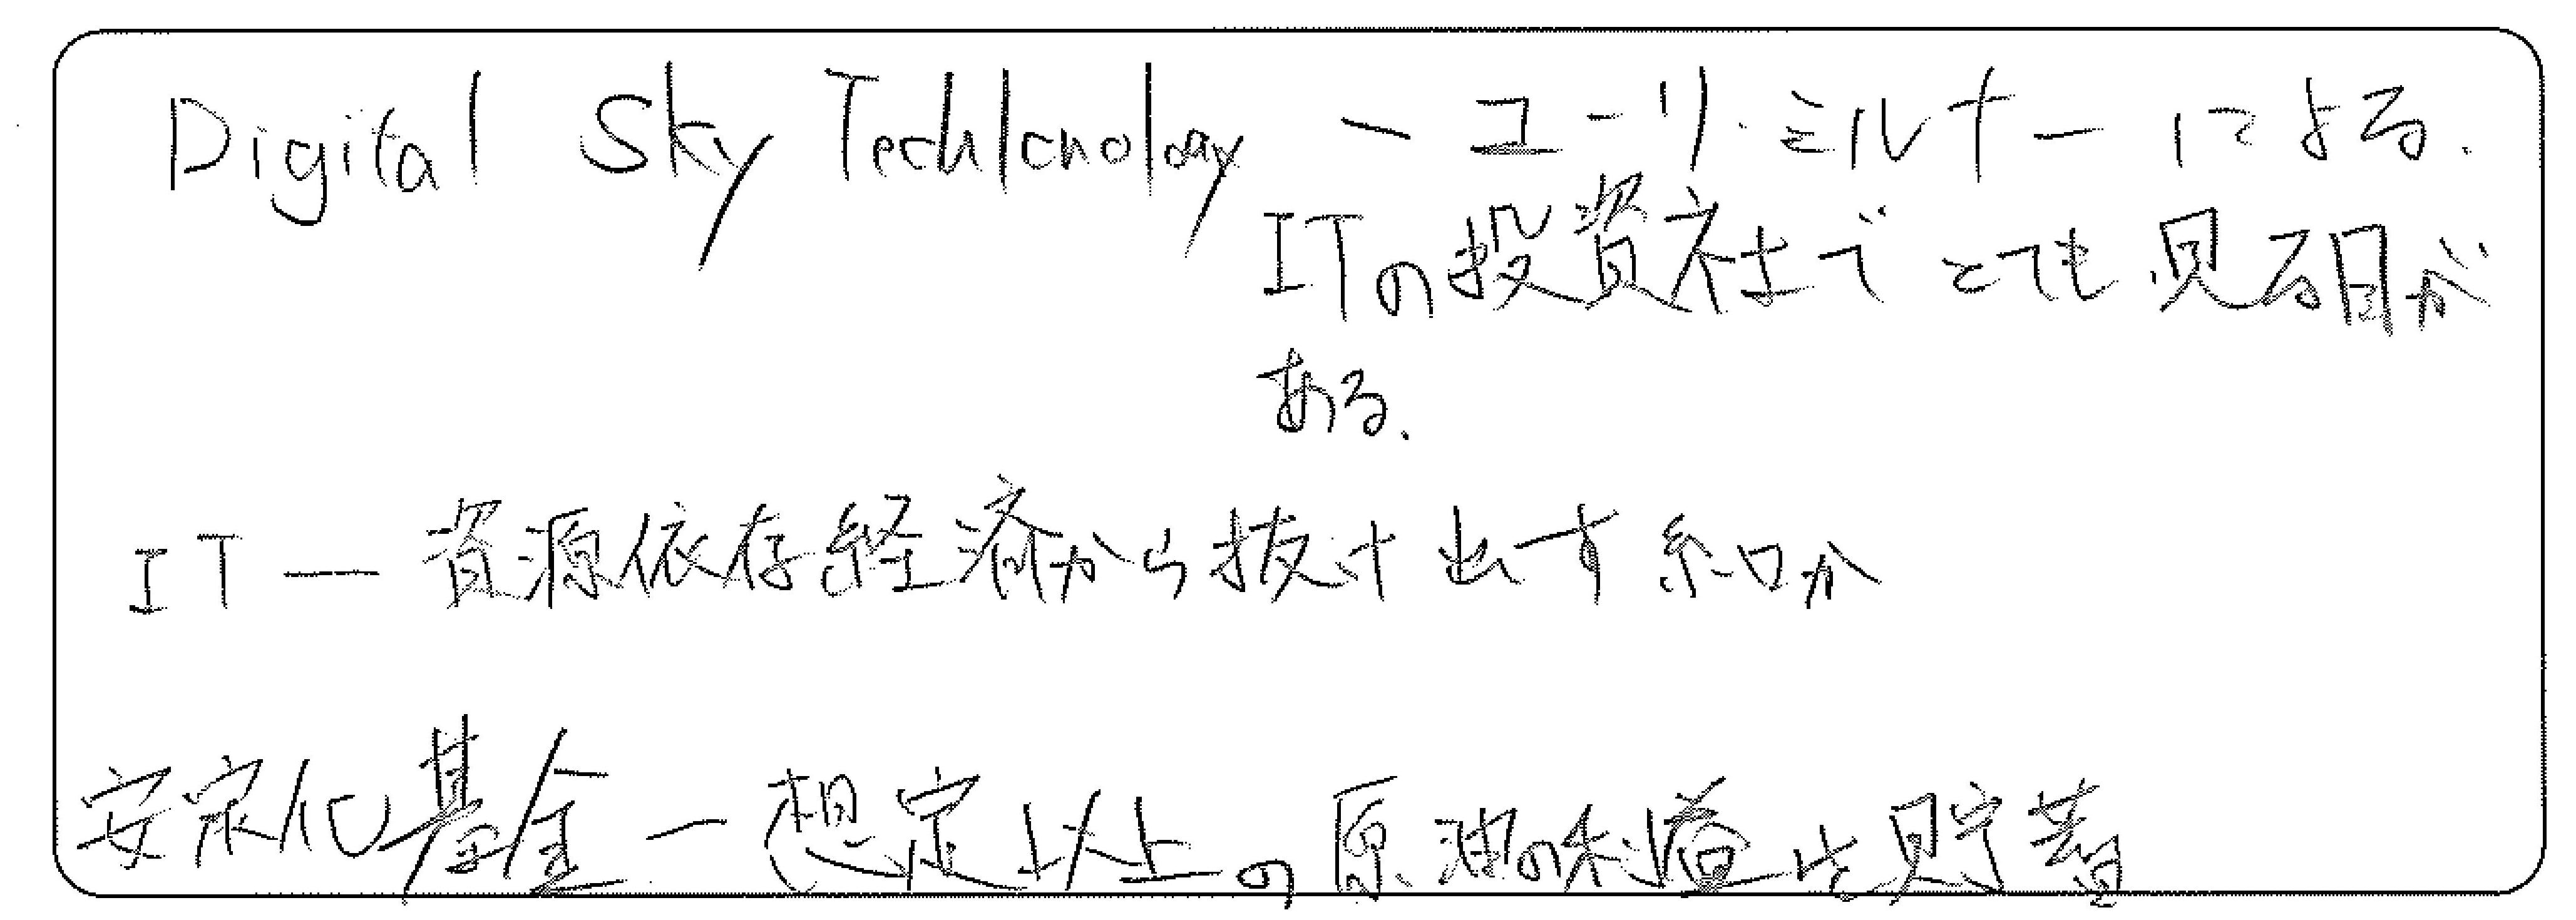 Digital Sky Techlonology ー ユーリ・ミルナーによる.
ITの投資社で とても見る目が
ある.
IT ― 資源依存経済から抜け出す糸口か
安定化基金 ー 想定以上の原油の利益を貯蓄